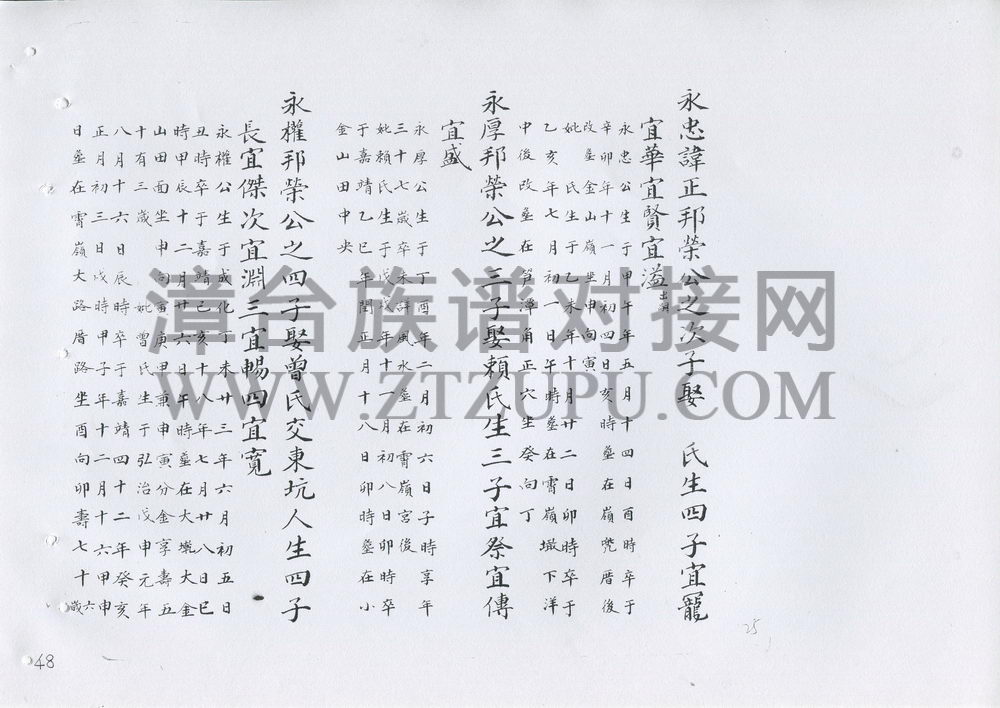 永忠諱正邦榮公之次子娶 氏生四子宜寵
宜華宜賢宜溢出嗣
永忠公生于甲午年五月十四日酉時卒于
辛卯年十一月初四日亥時葬在嶺兜厝後
改葬金山嶺坐申向寅
妣 氏生于乙未年十月廿二日卯時卒于
乙亥年七月初一日午時葬在霄嶺墩下洋
中後改葬在 潭角正穴坐癸向丁
永厚邦榮公之三子娶賴氏生三子宜祭宜傳
宜盛
永厚公生于丁酉年二月初六日子時享年
三十七歲卒未詳風水葬在霄嶺宮後
妣賴氏生于戊戌年十一月初八日卯時卒
于嘉靖乙巳年閏正月十八日卯時葬在小
金山田中央
永權邦榮公之四子娶曾氏交東坑人生四子
長宜傑次宜淵三宜暢四宜寬
永權公生于成化丁未廿三年六月初五日
丑時卒于嘉靖己亥十八年七月廿八日巳
時甲辰十二月廿六日午時葬在大墘大金
山田面坐申向寅庚申兼甲寅分金享壽五
十有三歲 妣曾氏生于弘治戊申元年
八月十六日辰時卒于嘉靖四十二年癸亥
正月初三日戊時甲子年十二月十六甲申
日葬在霄嶺大路厝路坐酉向卯壽七十六歲
漳台族谱对接网
WWW.ZTZUPU.COM
25
48